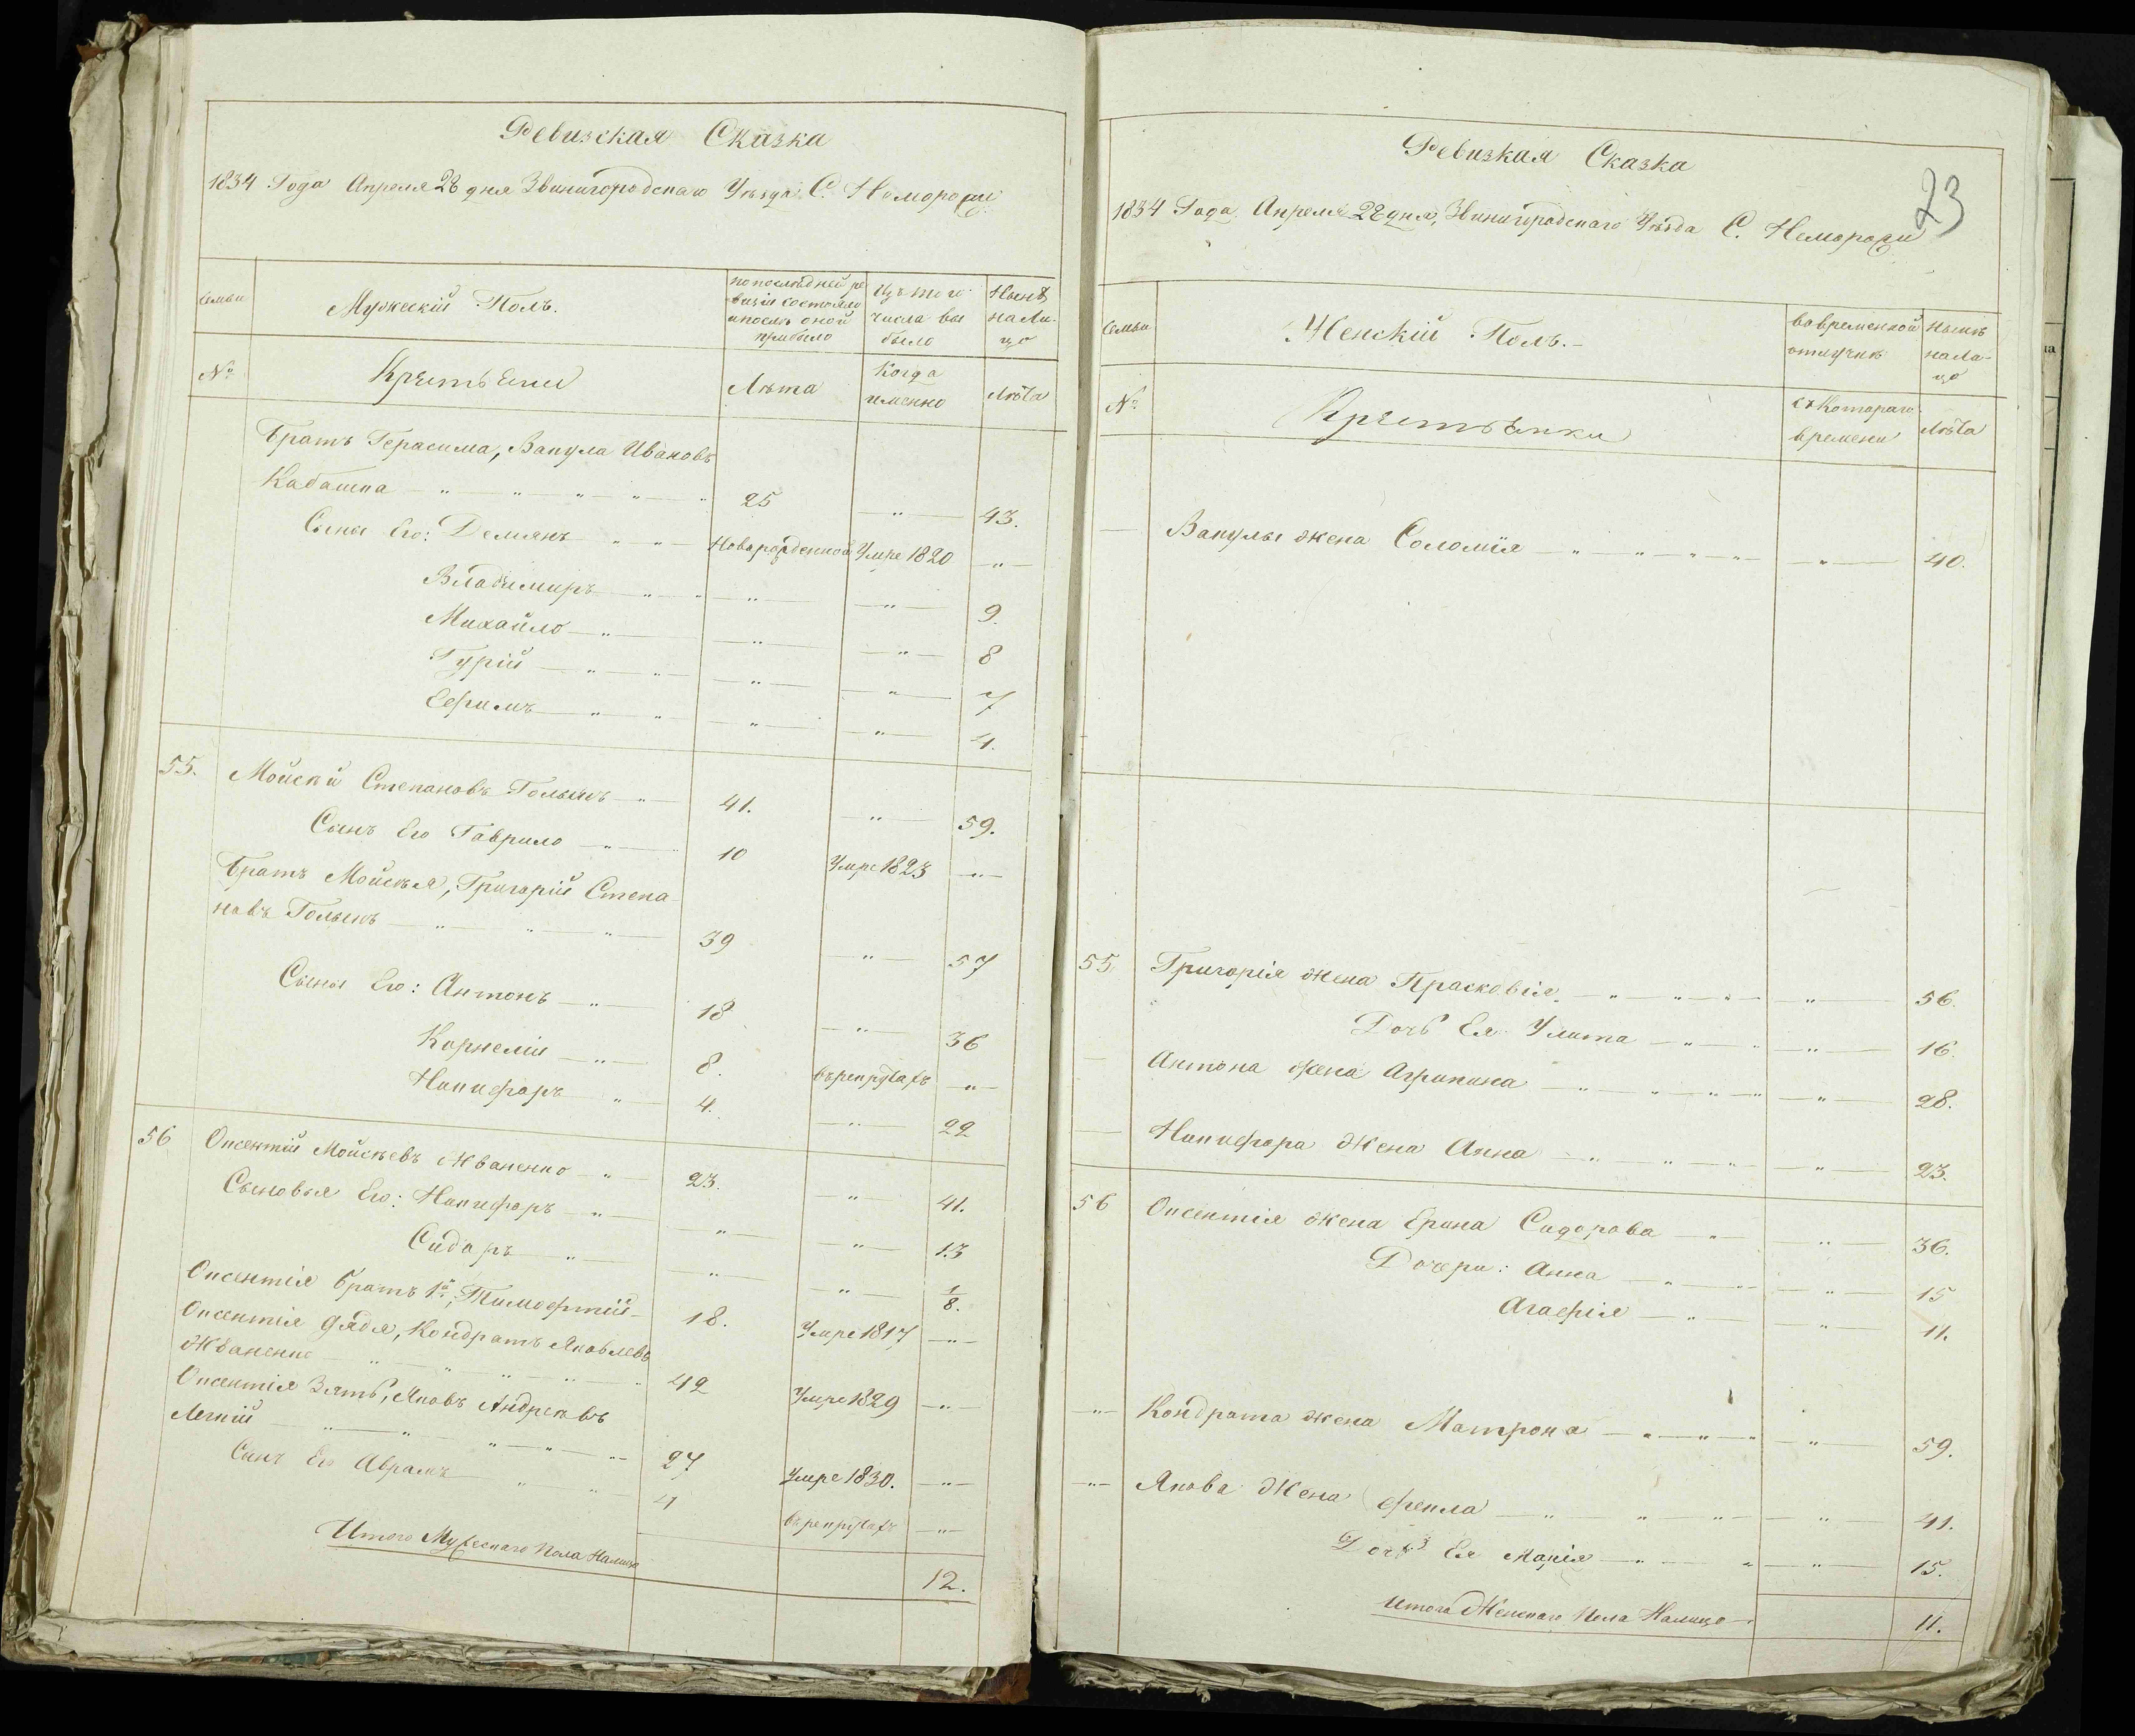 Ревизская Сказка
1834 Года Апреля 28 дня Звенигородскаго Уѣзда С. Неморожи
Семьи
Мужескій Полъ.
по последней ре
визіи состояло
и после оной
прибыло
Изъ того
числа вы
было
Нынѣ
на ли-
цо
№
Крестьяне
Лѣта
Когда
именно
Лѣта
Братъ Герасима, Вакула Ивановъ
Кабашка — " — " — " — " — " 25 — " — 43.
Сыны Его: Демианъ " — " — Новорожденной Умре 1820 — " —
Владимиръ — " — " — " — — " — 9.
Михайло — " — — " — — " — 8
Гурій — " — " — — " — — " — 7
Ефимъ — " — " — — " — — " — 4.
55. Мойсей Степановъ Голыкъ — " — 41. — " — 59.
Сынъ Его Гаврило — " — 10 Умре 1823 — " —
Братъ Мойсея, Григорій Степа
новъ Голыкъ — " — " — " — 39 — " — 57
Сыны Его: Антонъ — " — 18 — " — 36
Корнелій — " — 8. въ рекрутахъ — " —
Никифоръ — " — 4. — " — 22
56 Оксентій Мойсѣевъ Жваненко — " — 23. — " — 41.
Сыновья Его: Никифоръ — " — — " — — " — 13
Сидоръ — " — — " — — " — 1/8.
Оксентія братъ 1й, Тимофтей — 18. Умре 1817 — " —
Оксентія дядя, Кондратъ Яковлевъ
Жваненко — " — " — " — " — " 42 Умре 1829 — " —
Оксентія Зять, Яковъ Андреевъ
Легкій — " — " — " — " — " — 27 Умре 1830. — " —
Сынъ Его Абрамъ — " — " — 4 въ рекрутахъ — " —
Итого Мужескаго пола Налицо 12.
Ревизкая Сказка
23
1834 Года Апреля 28 дня, Звенигородскаго Уѣзда С. Неморожи
Семьи
Женскій Полъ.-
во временной
отлучкѣ
Нынѣ
на ли-
цо
№
Крестьянки
съ Котораго
времени
Лѣта
— Вакулы жена Соломія — " — " — " — " — — " — 40.
55. Григорія жена Прасковія. — " — " — " — " — 56.
Дочь Ея Улита — " — " — " — 16.
— Антона жена Агрипина — " — " — " — " — — " — 28.
— Никифора Жена Анна — " — " — " — — " — 23.
56 Оксентія жена Ерина Сидорова — " — — " — 36.
Дочери: Анна — " — " — — " — 15
Агафія — " — — " — 11.
— " — Кондрата жена Матрона — " — " — " — " — 59.
— " — Якова Жена Фекла — " — " — " — — " — 41.
Дочь Ея Марія — " — " — " — 15.
Итого Женскаго Пола Налицо — 11.